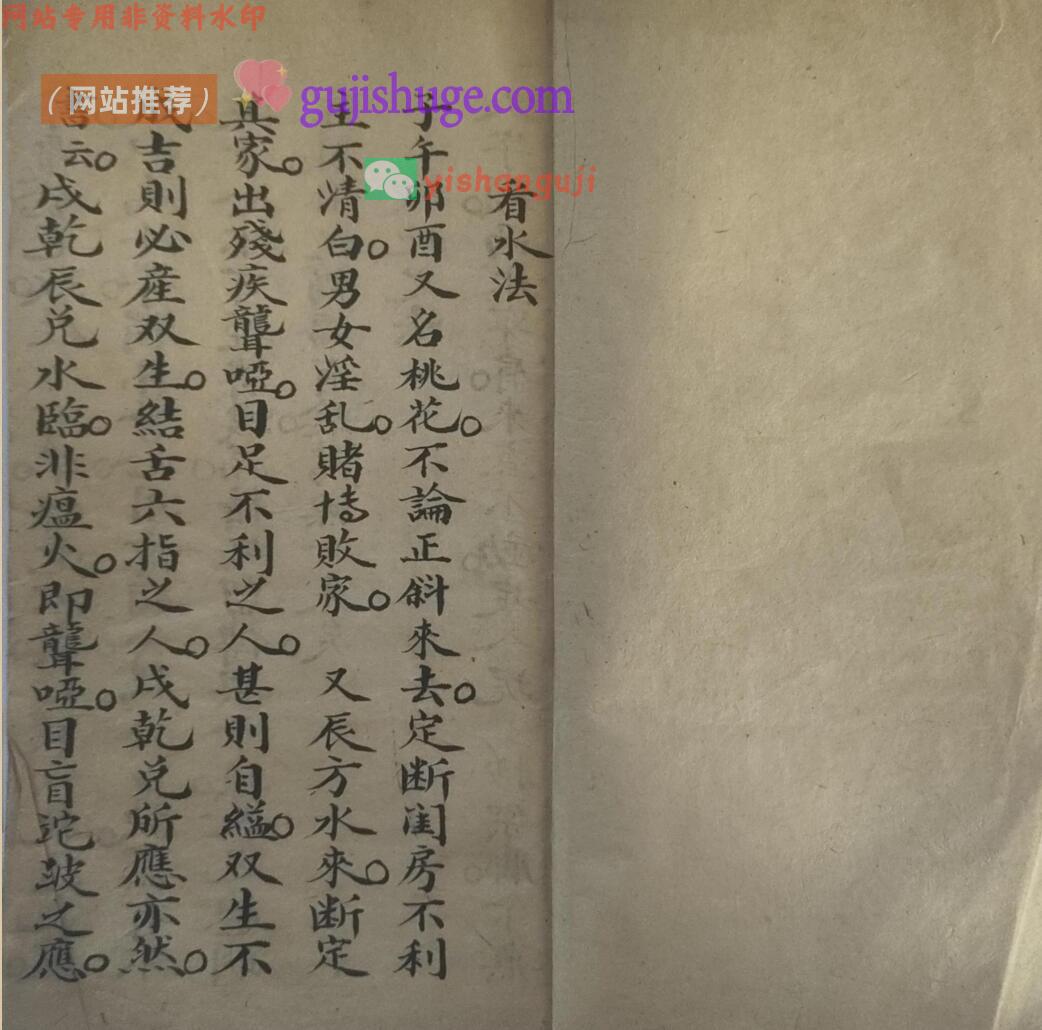 网站专用非资料水印
(网站推荐)
gujishuge.com
yishanguji
看水法
子午卯酉又名桃花。不論正斜來去。定断閨房不利
主不清白。男女淫乱。賭博敗家。 又辰方水來。断定
其家。出殘疾聾啞。目足不利之人。甚則自縊。双生不
成吉則必産双生。結舌六指之人。戌乾兌所應亦然。
書云。戌乾辰兌水臨。非瘟火。即聾啞。目盲跎跛之應。